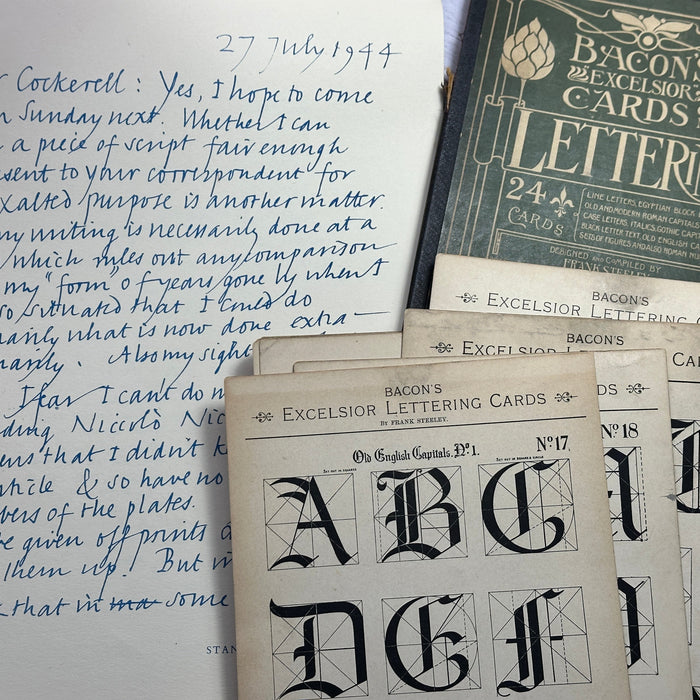 27 July 1944
Cockerell : Yes, I hope to come
Sunday next. Whether I can
a piece of script fair enough
sent to your correspondent for
xalted purpose is another matter.
my writing is necessarily done at a
which rules out any comparison
my "form" of years gone by when I
so situated that I could do
narily what is now done extra-
narily. Also my sight
I fear I can't do
ding Niccolò Nic
ens that I didn't k
article & so have no
bers of the plates.
given offprints
them up! But
that in ma some
STAN
BACON'S
EXCELSIOR
CARDS
LETTERIN
24
CARDS
LINE LETTERS, EGYPTIAN BLOC
OLD AND MODERN ROMAN CAPITALS
CASE LETTERS, ITALICS, GOTHIC CAPI
BLACK LETTER TEXT, OLD ENGLISH
SETS OF FIGURES AND ALSO ROMAN NU
DESIGNED AND COMPILED BY
FRANK STEELEY
BACON'S
EXCELSIOR LETTERING C
BACON'S
EXCELSIOR LETTERING CA
DS
No 18
A
BACON'S
EXCELSIOR LETTERING CARDS
BY FRANK STEELEY.
Old English Capitals. No 1.
No 17.
SET OUT IN SQUARES
SET OUT IN SQUARE & CIRCLE
A B C
D E F